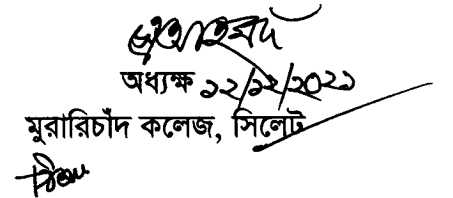 অধ্যক্ষ ১২/১২/২০২১
মুরারিচাঁদ কলেজ, সিলেট